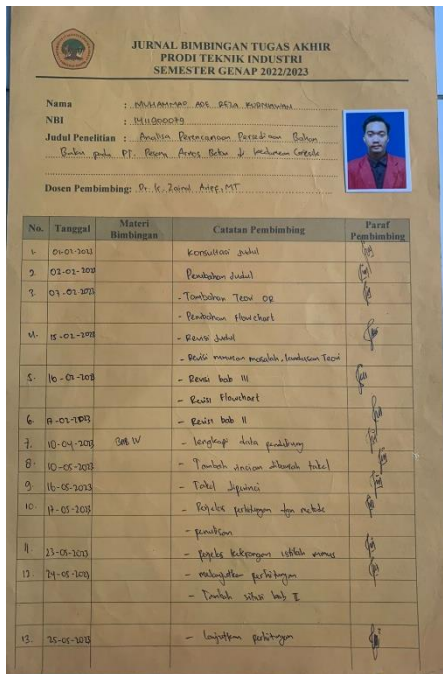 JURNAL BIMBINGAN TUGAS AKHIR
PRODI TEKNIK INDUSTRI
SEMESTER GENAP 2022/2023
Nama : MUHAMMAD ADE REZA KURNIAWAN
NBI : 1411900079
Judul Penelitian : Analisa Perencanaan Persediaan Bahan
Baku pada PT. Pesona Arnos Beton di
Dosen Pembimbing: Dr. Ir. Zainal Arief, MT
No. Tanggal Materi Bimbingan Catatan Pembimbing Paraf Pembimbing
1. 01-02-2023 Konsultasi Judul
2. 02-02-2023 Perubahan Judul
3. 07-02-2023 - Tambahan Teori OR
- Perubahan Flowchart
4. 15-02-2023 - Revisi Judul
- Revisi rumusan masalah, Landasan Teori
5. 16-02-2023 - Revisi bab III
- Revisi Flowchart
6. 17-02-2023 - Revisi bab II
7. 10-04-2023 BAB IV - lengkapi data pendukung
8. 10-05-2023 - Tambah rincian dibawah tabel
9. 16-05-2023 - Tabel diperinci
10. 17-05-2023 - perhitungan dan metode
- penulisan
11. 23-05-2023 - istilah rumus
12. 24-05-2023 - melanjutkan perhitungan
- Tambah sitasi bab II
13. 25-05-2023 - lanjutkan perhitungan